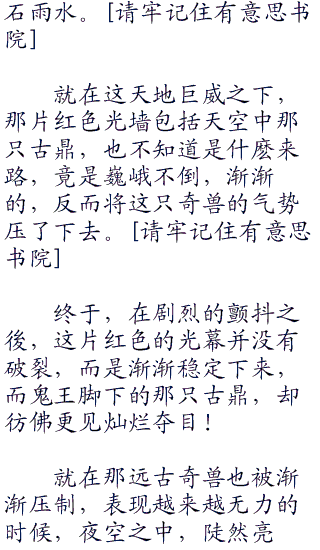 石雨水。[请牢记住有意思书
院]
就在这天地巨威之下，
那片红色光墙包括天空中那
只古鼎，也不知道是什麽来
路，竟是巍峨不倒，渐渐
的，反而将这只奇兽的气势
压了下去。[请牢记住有意思
书院]
终于，在剧烈的颤抖之
後，这片红色的光幕并没有
破裂，而是渐渐稳定下来，
而鬼王脚下的那只古鼎，却
彷佛更见灿烂夺目！
就在那远古奇兽也被渐
渐压制，表现越来越无力的
时候，夜空之中，陡然亮